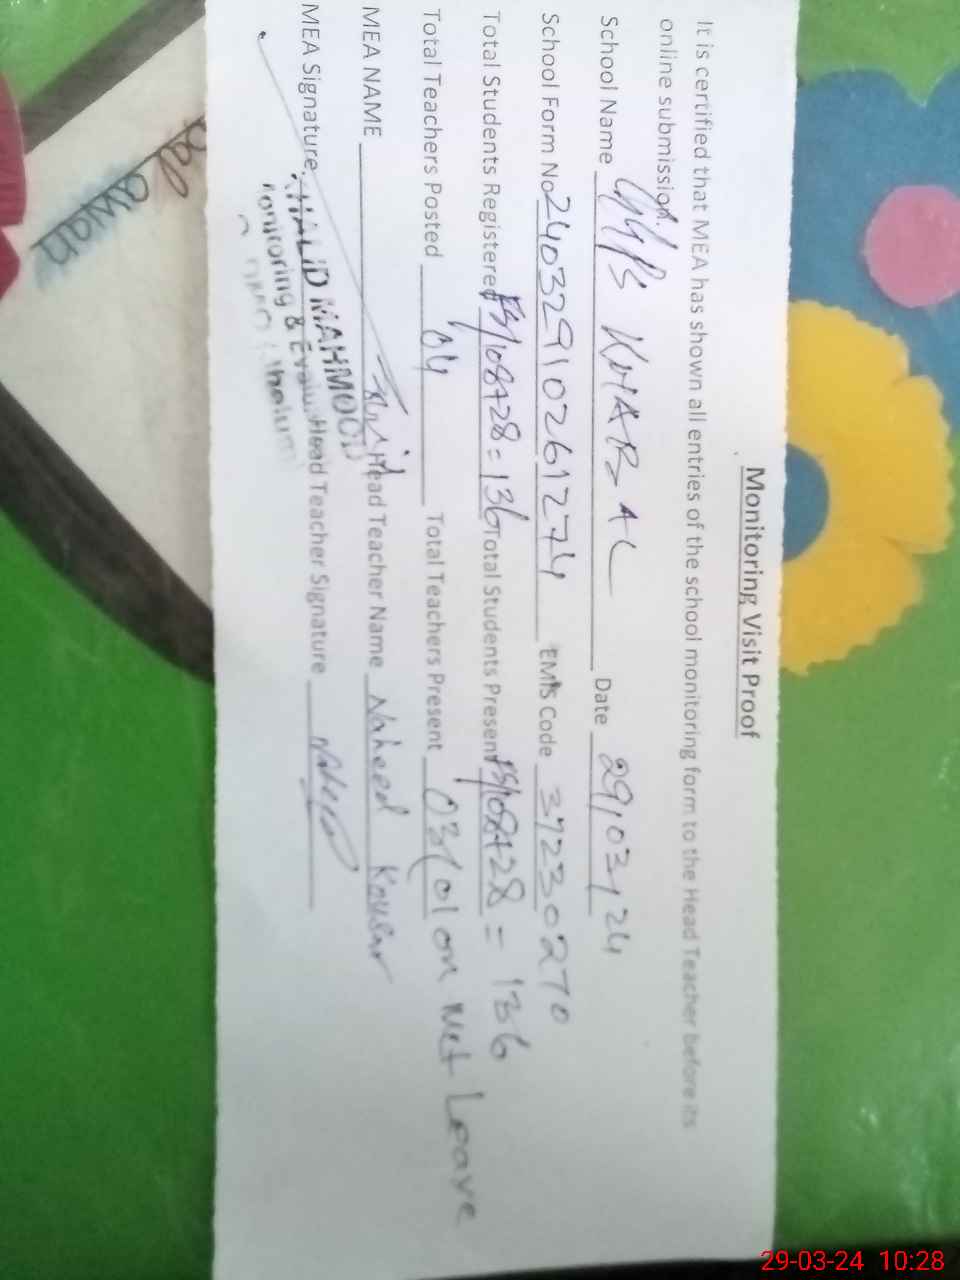 Monitoring Visit Proof
It is certified that MEA has shown all entries of the school monitoring form to the Head Teacher before its
online submission.
School Name GGPS KHABAL Date 29/03/24
School Form No 24032910261274 EMIS Code 37230270
Total Students Registered 108+28=136 Total Students Present 108+28=136
Total Teachers Posted 04 Total Teachers Present 03/01 on Met Leave
MEA NAME Head Teacher Name Naheed Kousar
MEA Signature Head Teacher Signature
KHALID MAHMOOD
Monitoring & Evalu
Jhelum
29-03-24 10:28